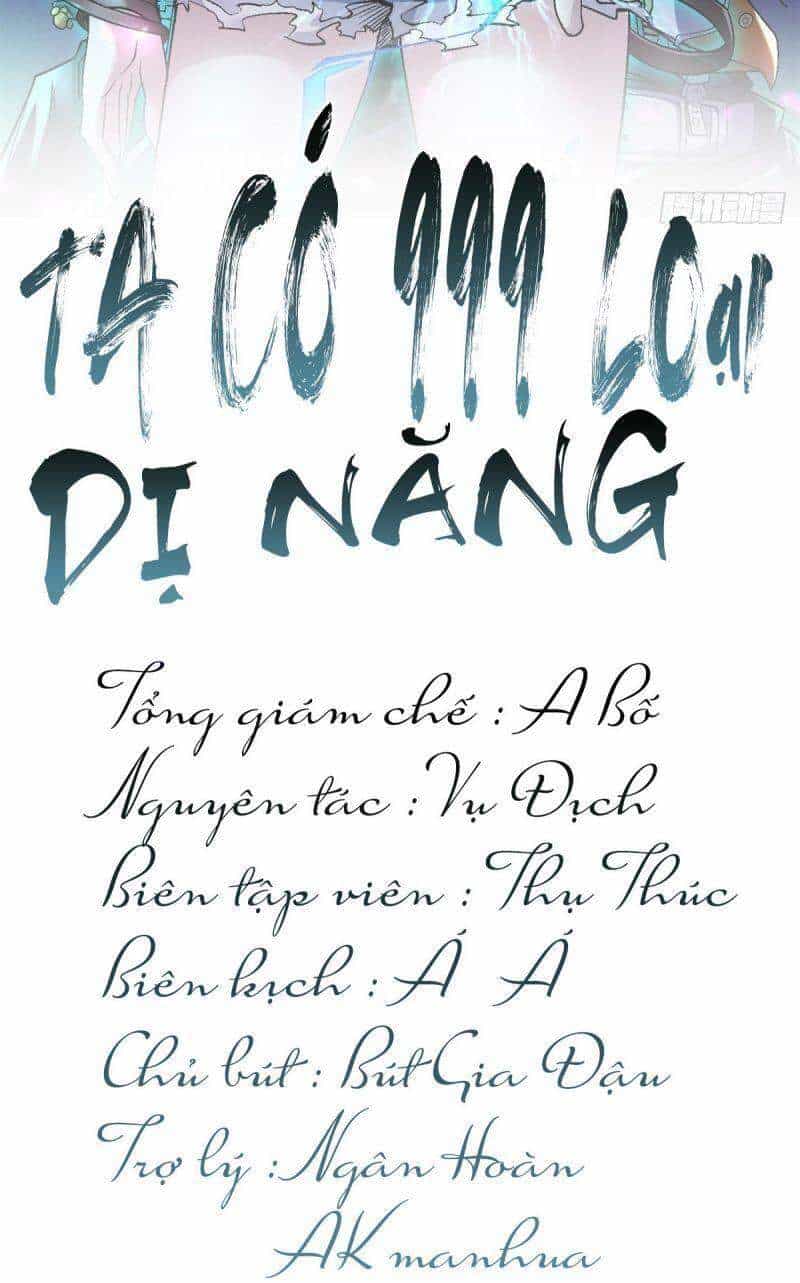 TA CÓ 999 LOẠI
DỊ NĂNG
Tổng giám chế : A Bố
Nguyên tác : Vụ Địch
Biên tập viên : Thụ Thúc
Biên kịch : Á Á
Chủ bút : Bút Gia Đậu
Trợ lý : Ngân Hoàn
AK manhua